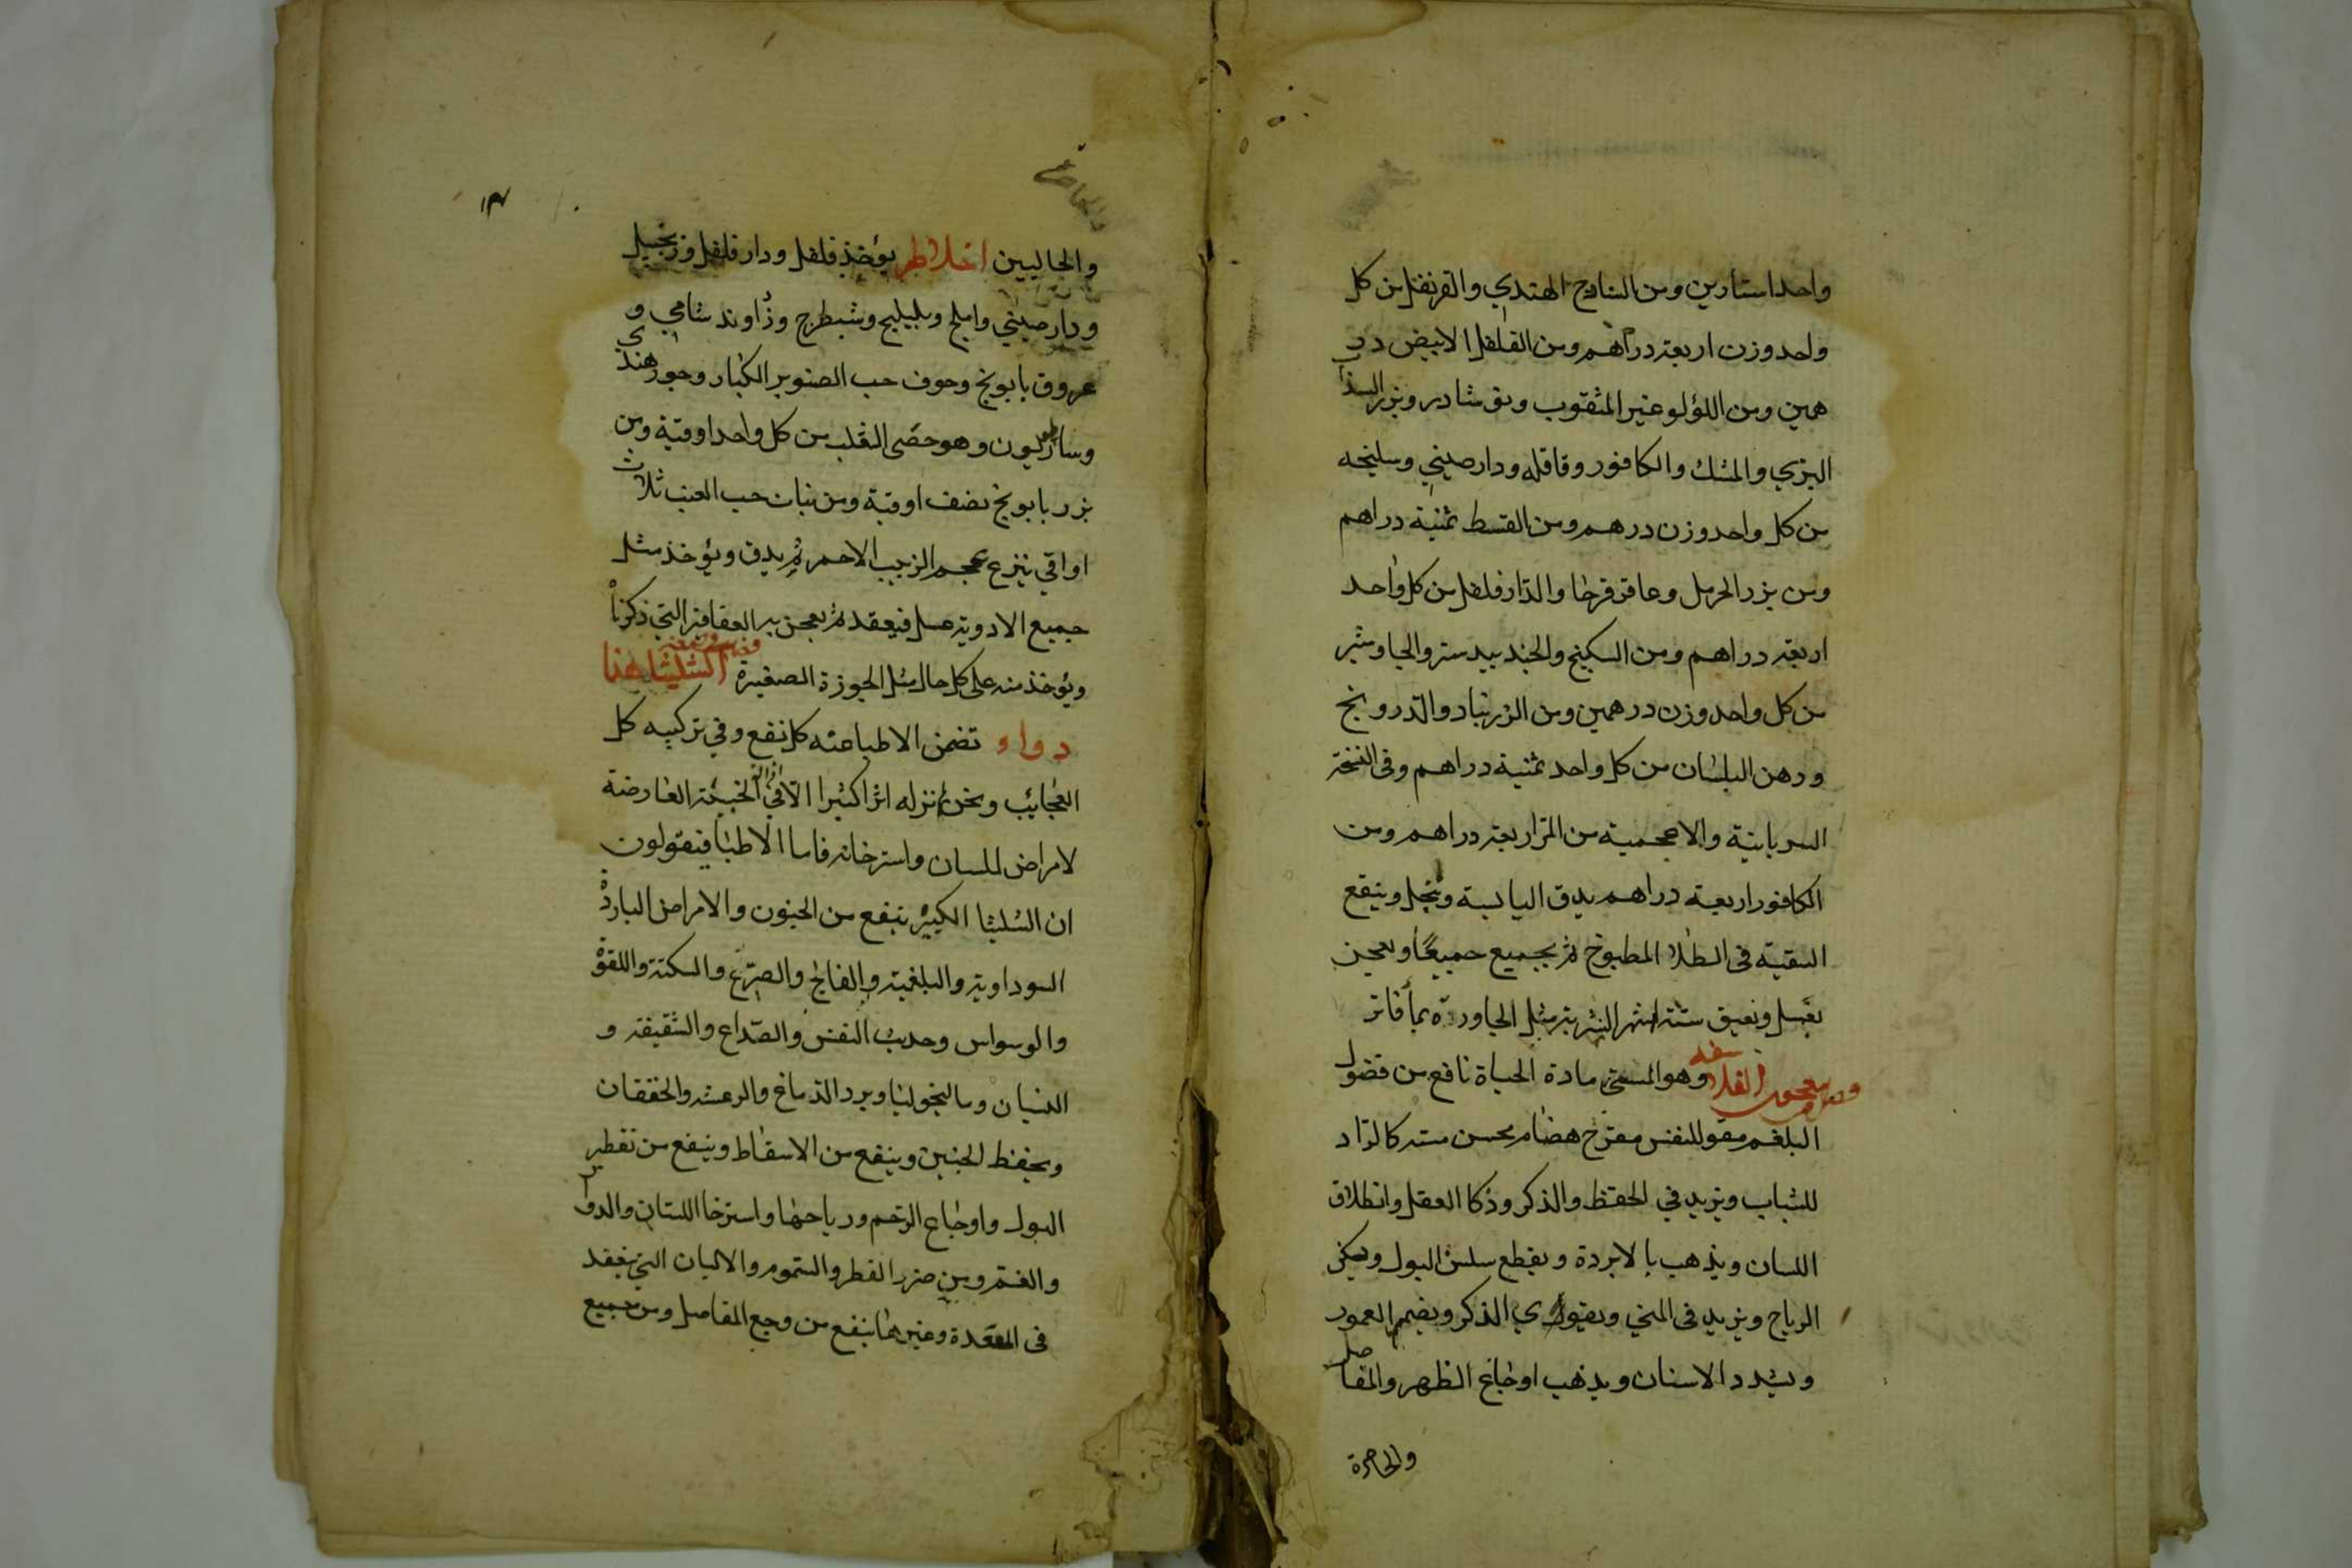 واحد استارين ومن السادج الهندي والقرنفل من كل
واحد وزن اربعة دراهم ومن الفلفل الابيض در
همين ومن اللؤلو غير المثقوب ونوشادر وبزر السذاب
البري والمسك والكافور وقاقله ودارصيني وسليخه
من كل واحد وزن درهم ومن القسط ثمنية دراهم
ومن بزر الحرمل وعاقرقرحا والدارفلفل من كل واحد
اربعة دراهم ومن السكبينج والجندبيدستر والجاوشير
من كل واحد وزن درهمين ومن الزرنباد والدرونج
ودهن البلسان من كل واحد ثمنية دراهم وفى النسخة
السريانية والاعجمية من المر اربعة دراهم ومن
الكافور اربعة دراهم يدق اليابسة وينخل وينقع
البقية فى الطلا المطبوخ ثم يجميع جميعًا ويعجن
بعسل ويعتق ستة اشهر الشربة مثل الجاورة بمأ فاتر
معجون الفلاسفه وهو المسمى مادة الحياة نافع من فضول
البلغم مقو للنفس مفرح هضام يحسن كالزاد
للشباب ويزيد في الحفظ والذكر وذكا العقل وانطلاق
اللسان ويذهب بالابردة ويقطع سلس البول ويسكن
الرياح ويزيد فى المني ويقوي الذكر ويضيم العمور
ويشدد الاسنان ويذهب اوجاع الظهر والمفاصل
والخاصرة
١٣
والحالبين اخلاطه يؤخذ فلفل ودار فلفل وزنجبيل
ودارصيني واملج وبليليج وشيطرج وزُراوند شامي و
عروق بابونج وجوف حب الصنوبر الكبار وجوز هندي
وساطريون وهو خصى الثعلب من كل واحد اوقية ومن
بزر بابونج نصف اوقية ومن نبات حب العنب ثلاث
اواقي ينزع عجم الزبيب الاحمر ثم يدق ويؤخذ مثل
جميع الادوية عسل فيعقد ثم يعجن به العقاقير التي ذكرناه
ويؤخذ منه على كل حال مثل الجوزة الصغيرة الشليثا هذا
دواء تضمن الاطبا عنه كل نفع وفي تركيبه كل
العجايب ونحن لم نزله اثرا كثيرا الا في الخبيثة العارضة
لامراض للسان واسترخائه فاما الاطبا فيقولون
ان الشليثا الكبير ينفع من الجنون والامراض الباردة
السوداوية والبلغمية والفالج والصرع والسكتة واللقوة
والوسواس وحديث النفس والصداع والشقيقة و
النسيان ومالنخوليا وبرد الدماغ والرعشه والخفقان
ويحفظ الجنين وينفع من الاسقاط وينفع من تقطير
البول واوجاع الرحم ورياحها واسترخا اللسان والدوا
والغم ومن ضرر الفطر والسموم والالبان التي تعقد
فى المعدة وغيرهما ينفع من وجع المفاصل ومن جميع